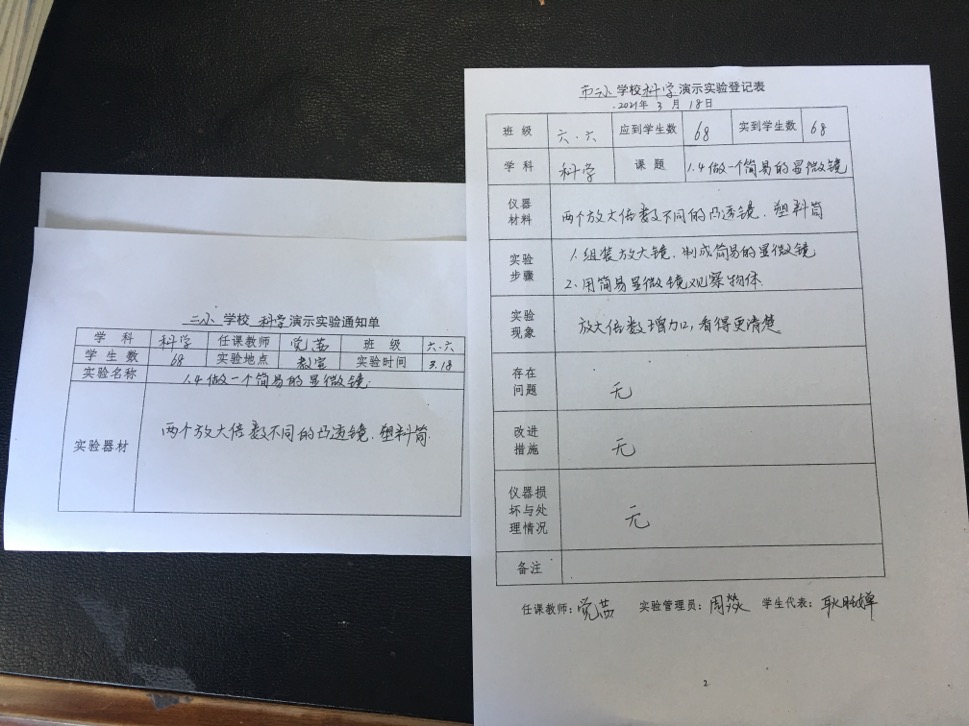 二小 学校 科学 演示实验通知单
学 科 科学 任课教师 觉茜 班 级 六.六
学 生 数 68 实验地点 教室 实验时间 3.18
实验名称 1.4做一个简易的显微镜.
实验器材 两个放大倍数不同的凸透镜、塑料筒.
市二小 学校 科学 演示实验登记表
2021年 3 月 18日
班 级 六.六 应到学生数 68 实到学生数 68
学 科 科学 课 题 1.4做一个简易的显微镜
仪器
材料
两个放大倍数不同的凸透镜、塑料筒
实验
步骤
1.组装放大镜、制成简易的显微镜
2.用简易显微镜观察物体.
实验
现象
放大倍数增加,看得更清楚
存在
问题
无
改进
措施
无
仪器损
坏与处
理情况
无
备注
任课教师:觉茜 实验管理员:周燚 学生代表:
2